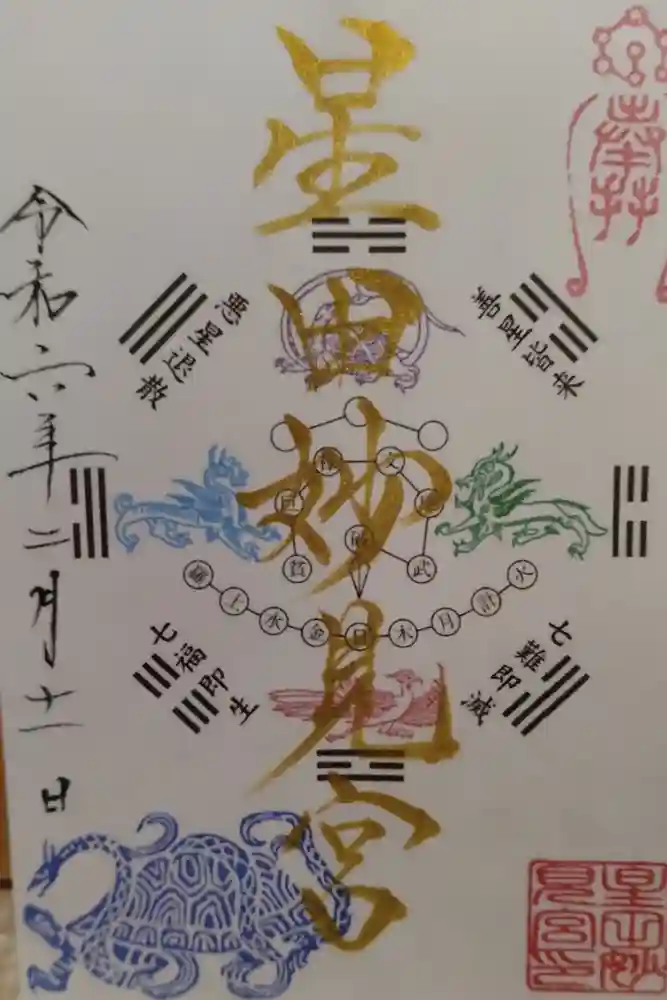 奉拝
星田妙見宮
善星皆来
悪星退散
七難即滅
七福即生
禄 文
巨 廉
破
貪 武
羅 土 水 金 日 木 月 計 火
令和六年二月十一日
星田妙見宮印